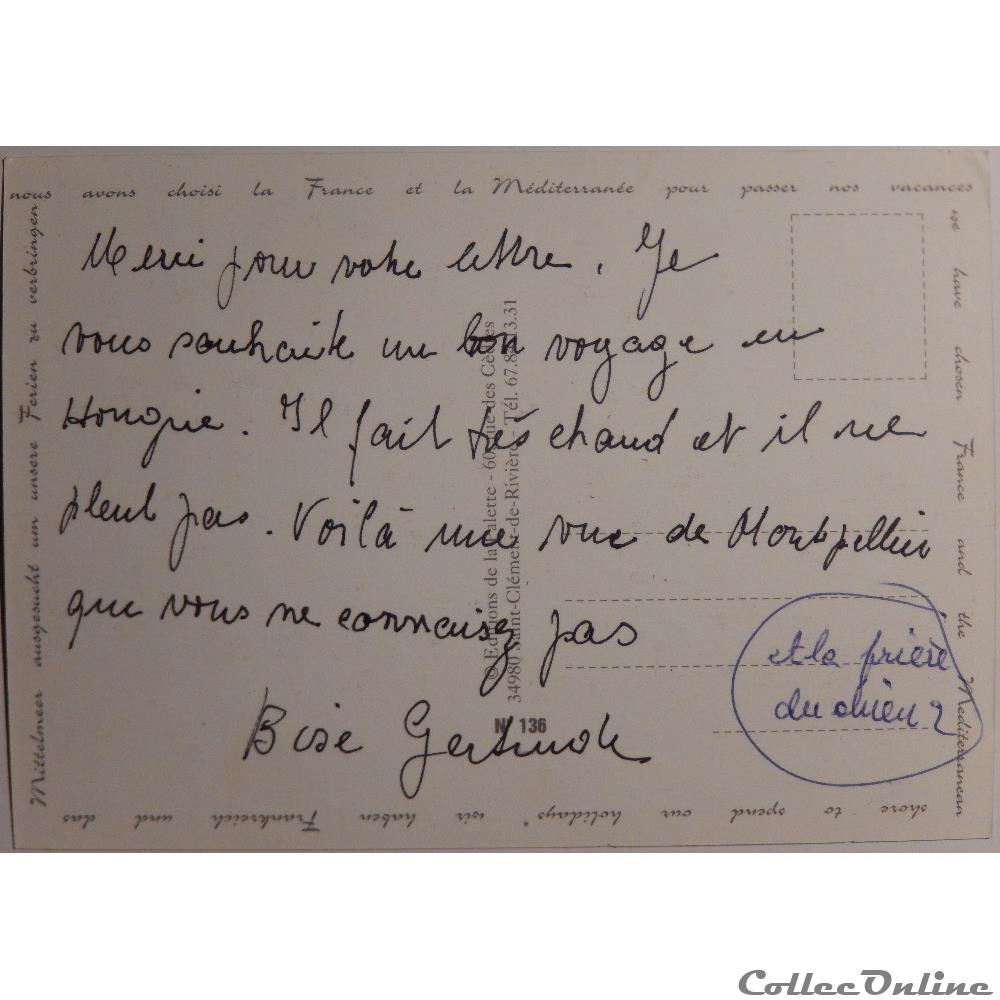 nous avons choisi la France et la Méditerranée pour passer nos vacances
we have chosen France and the Mediterranean
shore to spend our holidays" wir haben Frankreich und das
Mittelmeer ausgesucht um unsere Ferien zu verbringen
Merci pour votre lettre. Je
vous souhaite un bon voyage en
Hongrie. Il fait très chaud et il ne
pleut pas. Voilà une vue de Montpellier
que vous ne connaisez pas
Bise Gertrude
et la prière
du chien ?
© Editions de la Valette - 60 rue des
34980 Saint-Clément-de-Rivière - Tél. 67.84.13.31
N° 136
CollecOnline